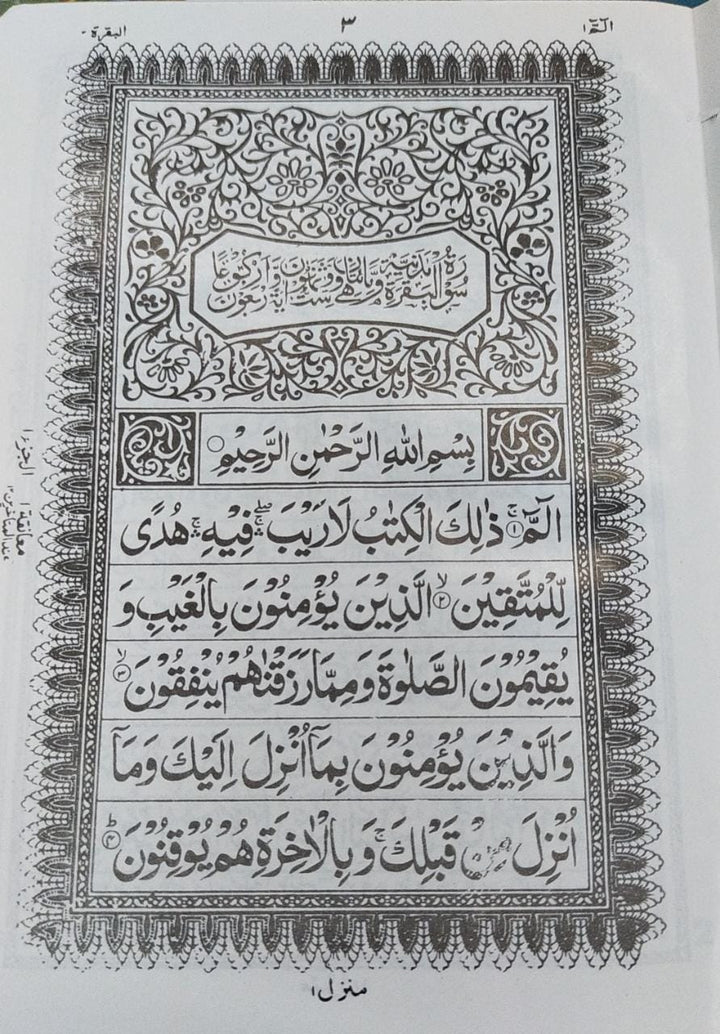 الٓمّٓ ١
٣
البقرة ٢
سُوْرَةُ الْبَقَرَةِ مَدَنِيَّةٌ وَّهِيَ مِائَتَانِ وَسِتٌّ وَّثَمَانُوْنَ اٰيَةً وَّاَرْبَعُوْنَ رُكُوْعًا
بِسْمِ اللّٰهِ الرَّحْمٰنِ الرَّحِيْمِ ○
الٓمّٓ ۚ﴿۱﴾ ذٰلِكَ الْكِتٰبُ لَا رَيْبَ ۛۖ فِيْهِ ۛۚ هُدًى
لِّلْمُتَّقِيْنَ ۙ﴿۲﴾ الَّذِيْنَ يُؤْمِنُوْنَ بِالْغَيْبِ وَ
يُقِيْمُوْنَ الصَّلٰوةَ وَمِمَّا رَزَقْنٰهُمْ يُنْفِقُوْنَ ۙ﴿۳﴾
وَالَّذِيْنَ يُؤْمِنُوْنَ بِمَآ اُنْزِلَ اِلَيْكَ وَمَآ
اُنْزِلَ مِنْ قَبْلِكَ ۚ وَبِالْاٰخِرَةِ هُمْ يُوْقِنُوْنَ ؕ﴿۴﴾
الجزء ١
معانقة ١
عند المتاخرين ١٢
منزل ١